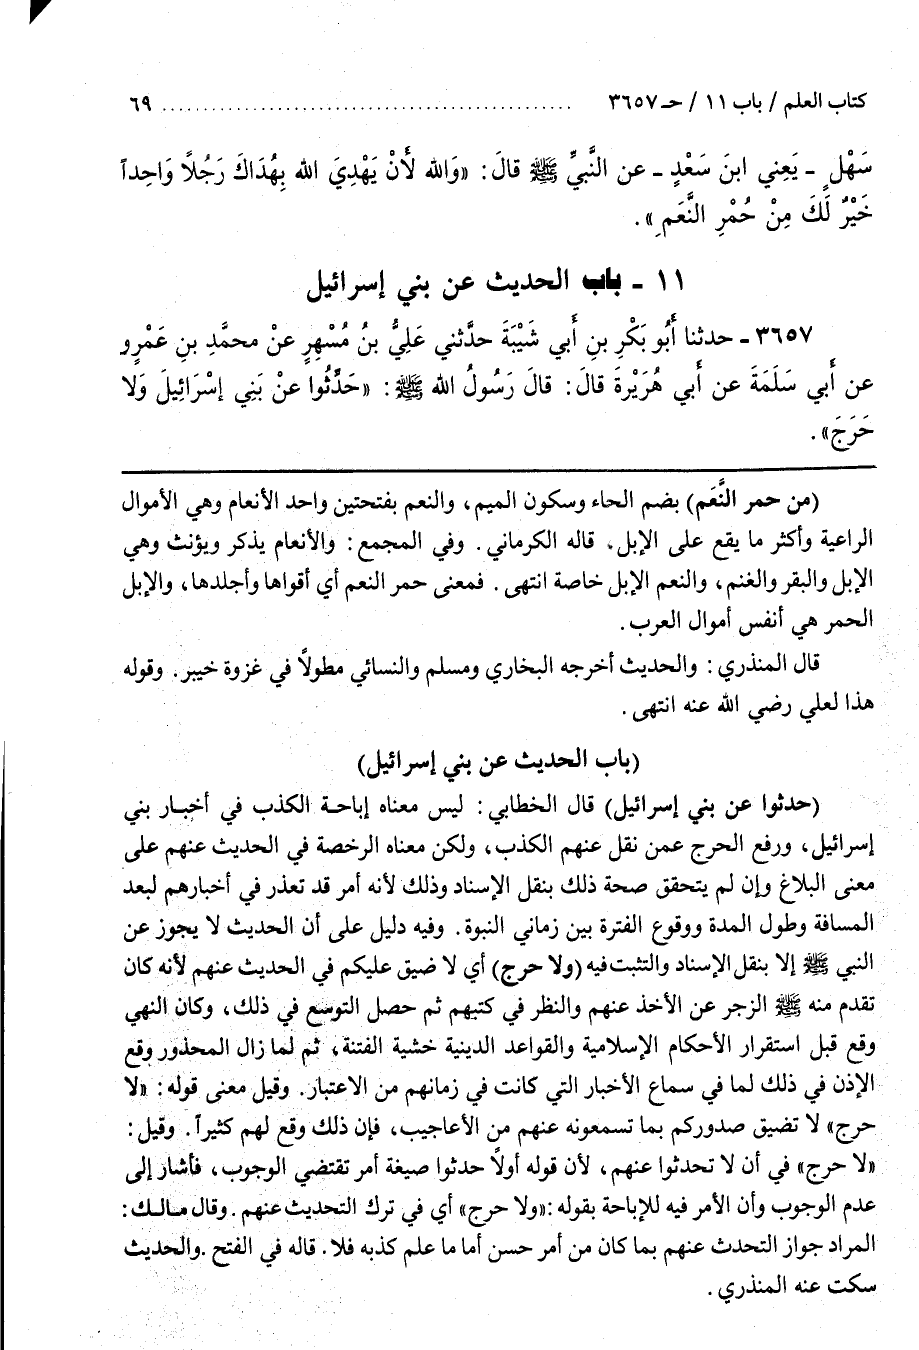 كتاب العلم / باب ١١ / حـ ٣٦٥٧ ............................................ ٦٩
سَهْلٍ ـ يَعِني ابنَ سَعْدٍ ـ عن النَّبيِّ ﷺ قالَ: «وَالله لأَنْ يَهْدِيَ الله بِهُدَاكَ رَجُلًا وَاحِداً
خَيْرٌ لَكَ مِنْ حُمْرِ النَّعَمِ».
١١ ـ باب الحديث عن بني إسرائيل
٣٦٥٧ ـ حدثنا أَبُو بَكْرِ بنِ أَبي شَيْبَةَ حدَّثني عَلِيُّ بنُ مُسْهِرٍ عنْ محمَّدِ بنِ عَمْرٍو
عن أَبي سَلَمَةَ عن أَبي هُرَيْرةَ قالَ: قالَ رَسُولُ الله ﷺ: «حَدِّثُوا عنْ بَنِي إسْرَائِيلَ وَلا
حَرَجَ».
(من حمر النَّعَم) بضم الحاء وسكون الميم، والنعم بفتحتين واحد الأنعام وهي الأموال
الراعية وأكثر ما يقع على الإبل، قاله الكرماني. وفي المجمع: والأنعام يذكر ويؤنث وهي
الإبل والبقر والغنم، والنعم الإبل خاصة انتهى. فمعنى حمر النعم أي أقواها وأجلدها، والإبل
الحمر هي أنفس أموال العرب.
قال المنذري: والحديث أخرجه البخاري ومسلم والنسائي مطولاً في غزوة خيبر. وقوله
هذا لعلي رضي الله عنه انتهى.
(باب الحديث عن بني إسرائيل)
(حدثوا عن بني إسرائيل) قال الخطابي: ليس معناه إباحة الكذب في أخبار بني
إسرائيل، ورفع الحرج عمن نقل عنهم الكذب، ولكن معناه الرخصة في الحديث عنهم على
معنى البلاغ وإن لم يتحقق صحة ذلك بنقل الإسناد وذلك لأنه أمر قد تعذر في أخبارهم لبعد
المسافة وطول المدة ووقوع الفترة بين زماني النبوة. وفيه دليل على أن الحديث لا يجوز عن
النبي ﷺ إلا بنقل الإسناد والتثبت فيه (ولا حرج) أي لا ضيق عليكم في الحديث عنهم لأنه كان
تقدم منه ﷺ الزجر عن الأخذ عنهم والنظر في كتبهم ثم حصل التوسع في ذلك، وكان النهي
وقع قبل استقرار الأحكام الإسلامية والقواعد الدينية خشية الفتنة، ثم لما زال المحذور وقع
الإذن في ذلك لما في سماع الأخبار التي كانت في زمانهم من الاعتبار. وقيل معنى قوله: «لا
حرج» لا تضيق صدوركم بما تسمعونه عنهم من الأعاجيب، فإن ذلك وقع لهم كثيراً. وقيل:
«لا حرج» في أن لا تحدثوا عنهم، لأن قوله أولاً حدثوا صيغة أمر تقتضي الوجوب، فأشار إلى
عدم الوجوب وأن الأمر فيه للإباحة بقوله: «ولا حرج» أي في ترك التحديث عنهم. وقال مالك:
المراد جواز التحدث عنهم بما كان من أمر حسن أما ما علم كذبه فلا. قاله في الفتح. والحديث
سكت عنه المنذري.